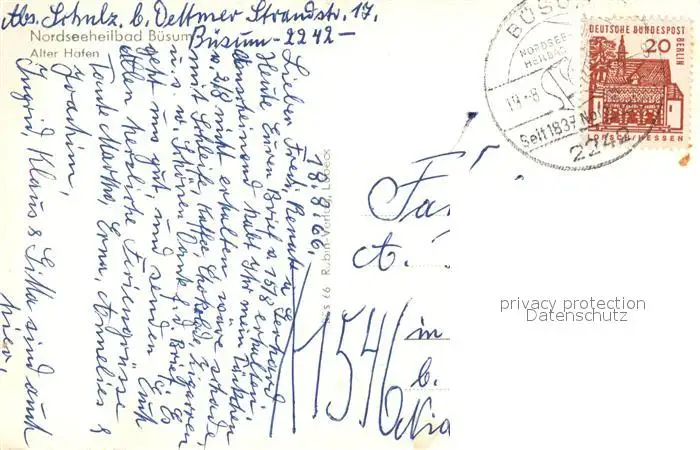 Abs. Schulz b. Dettmer Strandstr. 17,
Büsum - 2242 -
Nordseeheilbad Büsum
Alter Hafen
18.8.66.
Lieben Fredi, Renate u. Gerhard
Heute Euren Brief v. 15/8 erhalten.
Anscheinend habt Ihr mein Päckchen
v. 2/8 nicht erhalten wäre schade
mit Schleife, Kaffee, Schokolde, Zigarren,
u.s.w. Schönen Dank f. d. Brief. Es
geht uns gut, und senden Euch
Allen herzliche Feriengrüsse
Tante Martha, Erna, Annelies &
Joachim,
Ingrid, Klaus & Gitta sind auch
hier.
Rubin-Verlag, Lübeck
Fa
A.
1546
in
b.
BÜSU
NORDSEE-
HEILB
19.-8
Seit 1837 No
2242
DEUTSCHE BUNDESPOST
BERLIN
20
LORSCH/HESSEN
privacy protection
Datenschutz